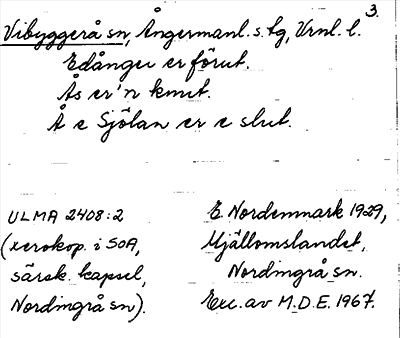 3.
Vibyggerå sn, Ångermanl. s. tg, Vrnl. l.
Edånger er förut.
Ås er'n knut.
Å e Själan er e slut.
ULMA 2408:2
(xerokop. i SOA,
särsk. kapsel,
Nordingrå sn).
E. Nordenmark 1929,
Mjällomslandet,
Nordingrå sn.
Exc. av M.D.E. 1967.